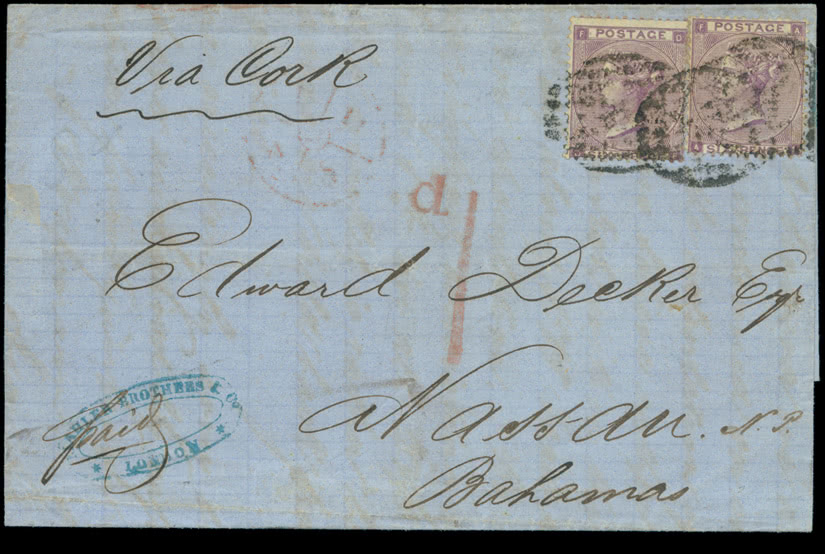 Via Cork
F POSTAGE D
F POSTAGE A
A SIXPENCE
d.
1
Edward Decker Esqr
BROTHERS & Co
LONDON
paid
Nassau. N.P.
Bahamas